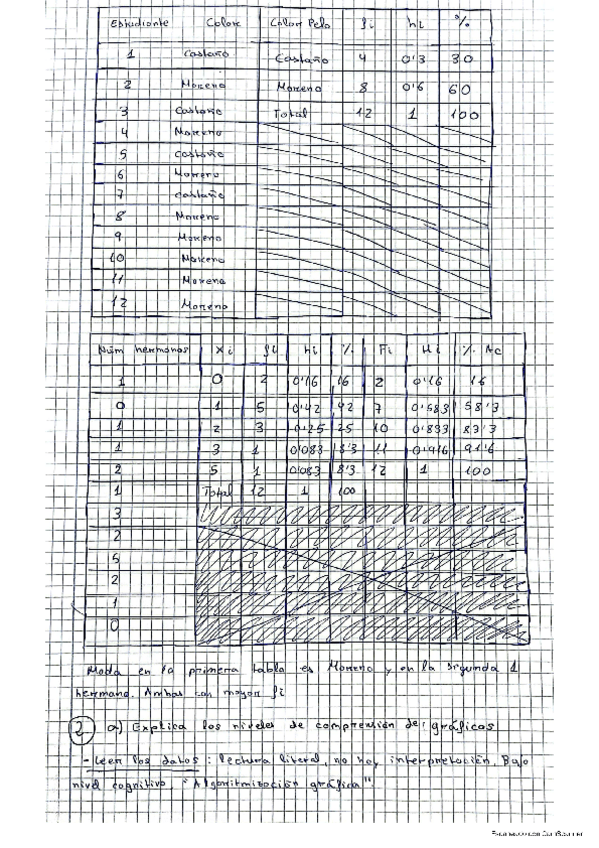 Estudiante Color Color Pelo fi hi %
1 Castaño Castaño 4 0'3 30
2 Moreno Moreno 8 0'6 60
3 Castaño Total 12 1 100
4 Moreno
5 Castaño
6 Moreno
7 Castaño
8 Moreno
9 Moreno
10 Moreno
11 Moreno
12 Moreno
Núm hermanos Xi fi hi % Fi Hi % Ac
1 0 2 0'16 16 2 0'16 16
0 1 5 0'42 42 7 0'583 58'3
1 2 3 0'25 25 10 0'833 83'3
1 3 1 0'083 8'3 11 0'916 91'6
2 5 1 0'083 8'3 12 1 100
1 Total 12 1 100
3
2
5
2
1
0
Moda en la primera tabla es Moreno y en la segunda 1
hermano. Ambas con mayor fi
2 a) Explica los niveles de comprensión de gráficos
- Leer los datos: lectura literal, no hay interpretación. Bajo
nivel cognitivo, "Algoritmización gráfica"
Escaneado con CamScanner